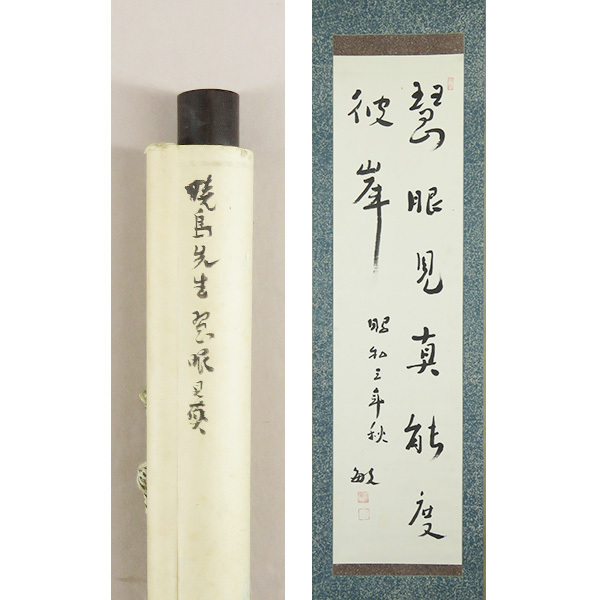 暁烏先生 慧眼見真
慧眼見真能度
彼岸
昭和三年秋
敏